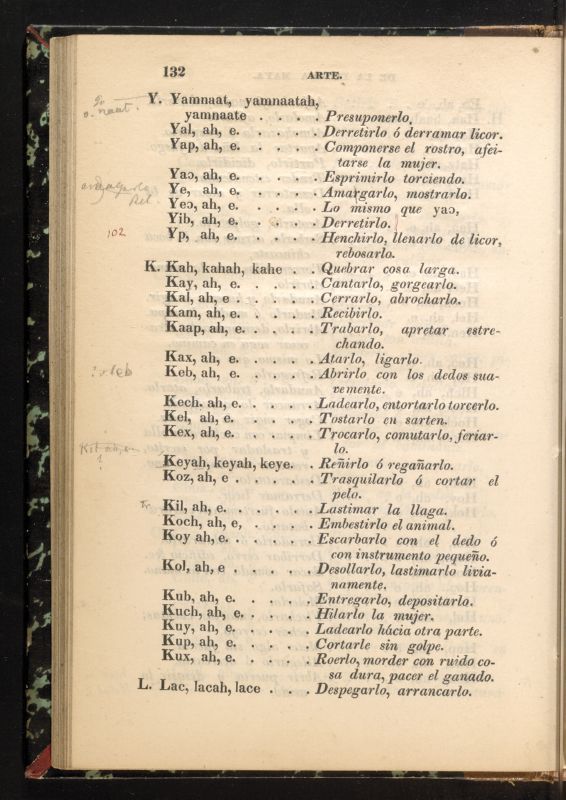 132 ARTE.
Y. Yamnaat, yamnaatah,
yamnaate . . . . Presuponerlo.
Yal, ah, e. . . . . Derretirlo ó derramar licor.
Yap, ah, e. . . . . Componerse el rostro, afei-
tarse la mujer.
Yaɔ, ah, e. . . . . Esprimirlo torciendo.
Ye, ah, e. . . . . Amargarlo, mostrarlo.
Yeɔ, ah, e. . . . . Lo mismo que yaɔ,
Yib, ah, e. . . . . Derretirlo.
102
Yp, ah, e. . . . . Henchirlo, llenarlo de licor,
rebosarlo.
K. Kah, kahah, kahe . Quebrar cosa larga.
Kay, ah, e. . . . . Cantarlo, gorgearlo.
Kal, ah, e . . . . . Cerrarlo, abrocharlo.
Kam, ah, e. . . . . Recibirlo.
Kaap, ah, e. . . . . Trabarlo, apretar estre-
chando.
Kax, ah, e. . . . . Atarlo, ligarlo.
Keb, ah, e. . . . . Abrirlo con los dedos sua-
vemente.
Kech. ah, e. . . . . Ladearlo, entortarlo torcerlo.
Kel, ah, e. . . . . Tostarlo en sarten.
Kex, ah, e. . . . . Trocarlo, comutarlo, feriar-
lo.
Keyah, keyah, keye. . Reñirlo ó regañarlo.
Koz, ah, e . . . . . Trasquilarlo ó cortar el
pelo.
Kil, ah, e. . . . . Lastimar la llaga.
Koch, ah, e, . . . . Embestirlo el animal.
Koy ah, e. . . . . . Escarbarlo con el dedo ó
con instrumento pequeño.
Kol, ah, e . . . . . Desollarlo, lastimarlo livia-
namente.
Kub, ah, e. . . . . Entregarlo, depositarlo.
Kuch, ah, e. . . . . Hilarlo la mujer.
Kuy, ah, e. . . . . Ladearlo hácia otra parte.
Kup, ah, e. . . . . Cortarle sin golpe.
Kux, ah, e. . . . . Roerlo, morder con ruido co-
sa dura, pacer el ganado.
L. Lac, lacah, lace . . . Despegarlo, arrancarlo.